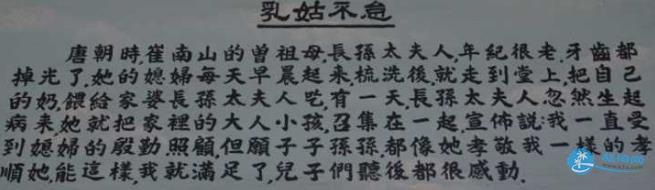 乳姑不怠
唐朝時,崔南山的曾祖母,長孫太夫人,年紀很老,牙齒都
掉光了,她的媳婦每天早晨起來,梳洗後,就走到堂上,把自己
的奶,餵給家婆長孫太夫人吃,有一天,長孫太夫人忽然生起
病來,她就把家裡的大人小孩,召集在一起,宣佈說:我一直受
到媳婦的殷勤照顧,但願子子孫孫都像她孝敬我一樣的孝
順她,能這樣,我就滿足了,兒子們聽後都很感動.